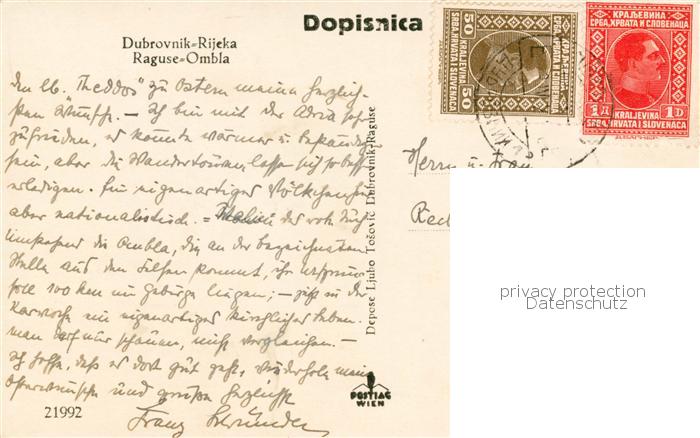 Dopisnica
Dubrovnik-Rijeka
Raguse-Ombla
Den lb. "Theddos" zu Ostern meine herzlich-
sten Grüsse. – Ich bin mit der Adria sehr
zufrieden, es könnte wärmer u. beständiger
sein, aber die Wandertouren lassen sich so besser
erledigen. Ein eigenartiges Völkchen hier
aber nationalistisch. =
die Ombla, die an der bezeichneten
Stelle aus den Felsen kommt, ihr Ursprung
soll 100 km im Gebirge liegen; – jetzt in der
Karwoche ein eigenartiges kirchliches Leben.
man darf nur schauen, nicht vergleichen. –
Ich hoffe, daß es dort gut geht, wiederhole meine
Osterwünsche und grüße herzlichst
Franz
21992
POSTIAG
WIEN
Depose Ljubo Tošović Dubrovnik-Raguse
50
КРАЉЕВИНА
СРБА, ХРВАТА И СЛОВЕНАЦА
KRALJEVINA
SRBA, HRVATA I SLOVENACA
50
КРАЉЕВИНА
СРБА, ХРВАТА И СЛОВЕНАЦА
1Д 1D
KRALJEVINA
SRBA, HRVATA I SLOVENACA
Herrn u. Frau
privacy protection
Datenschutz